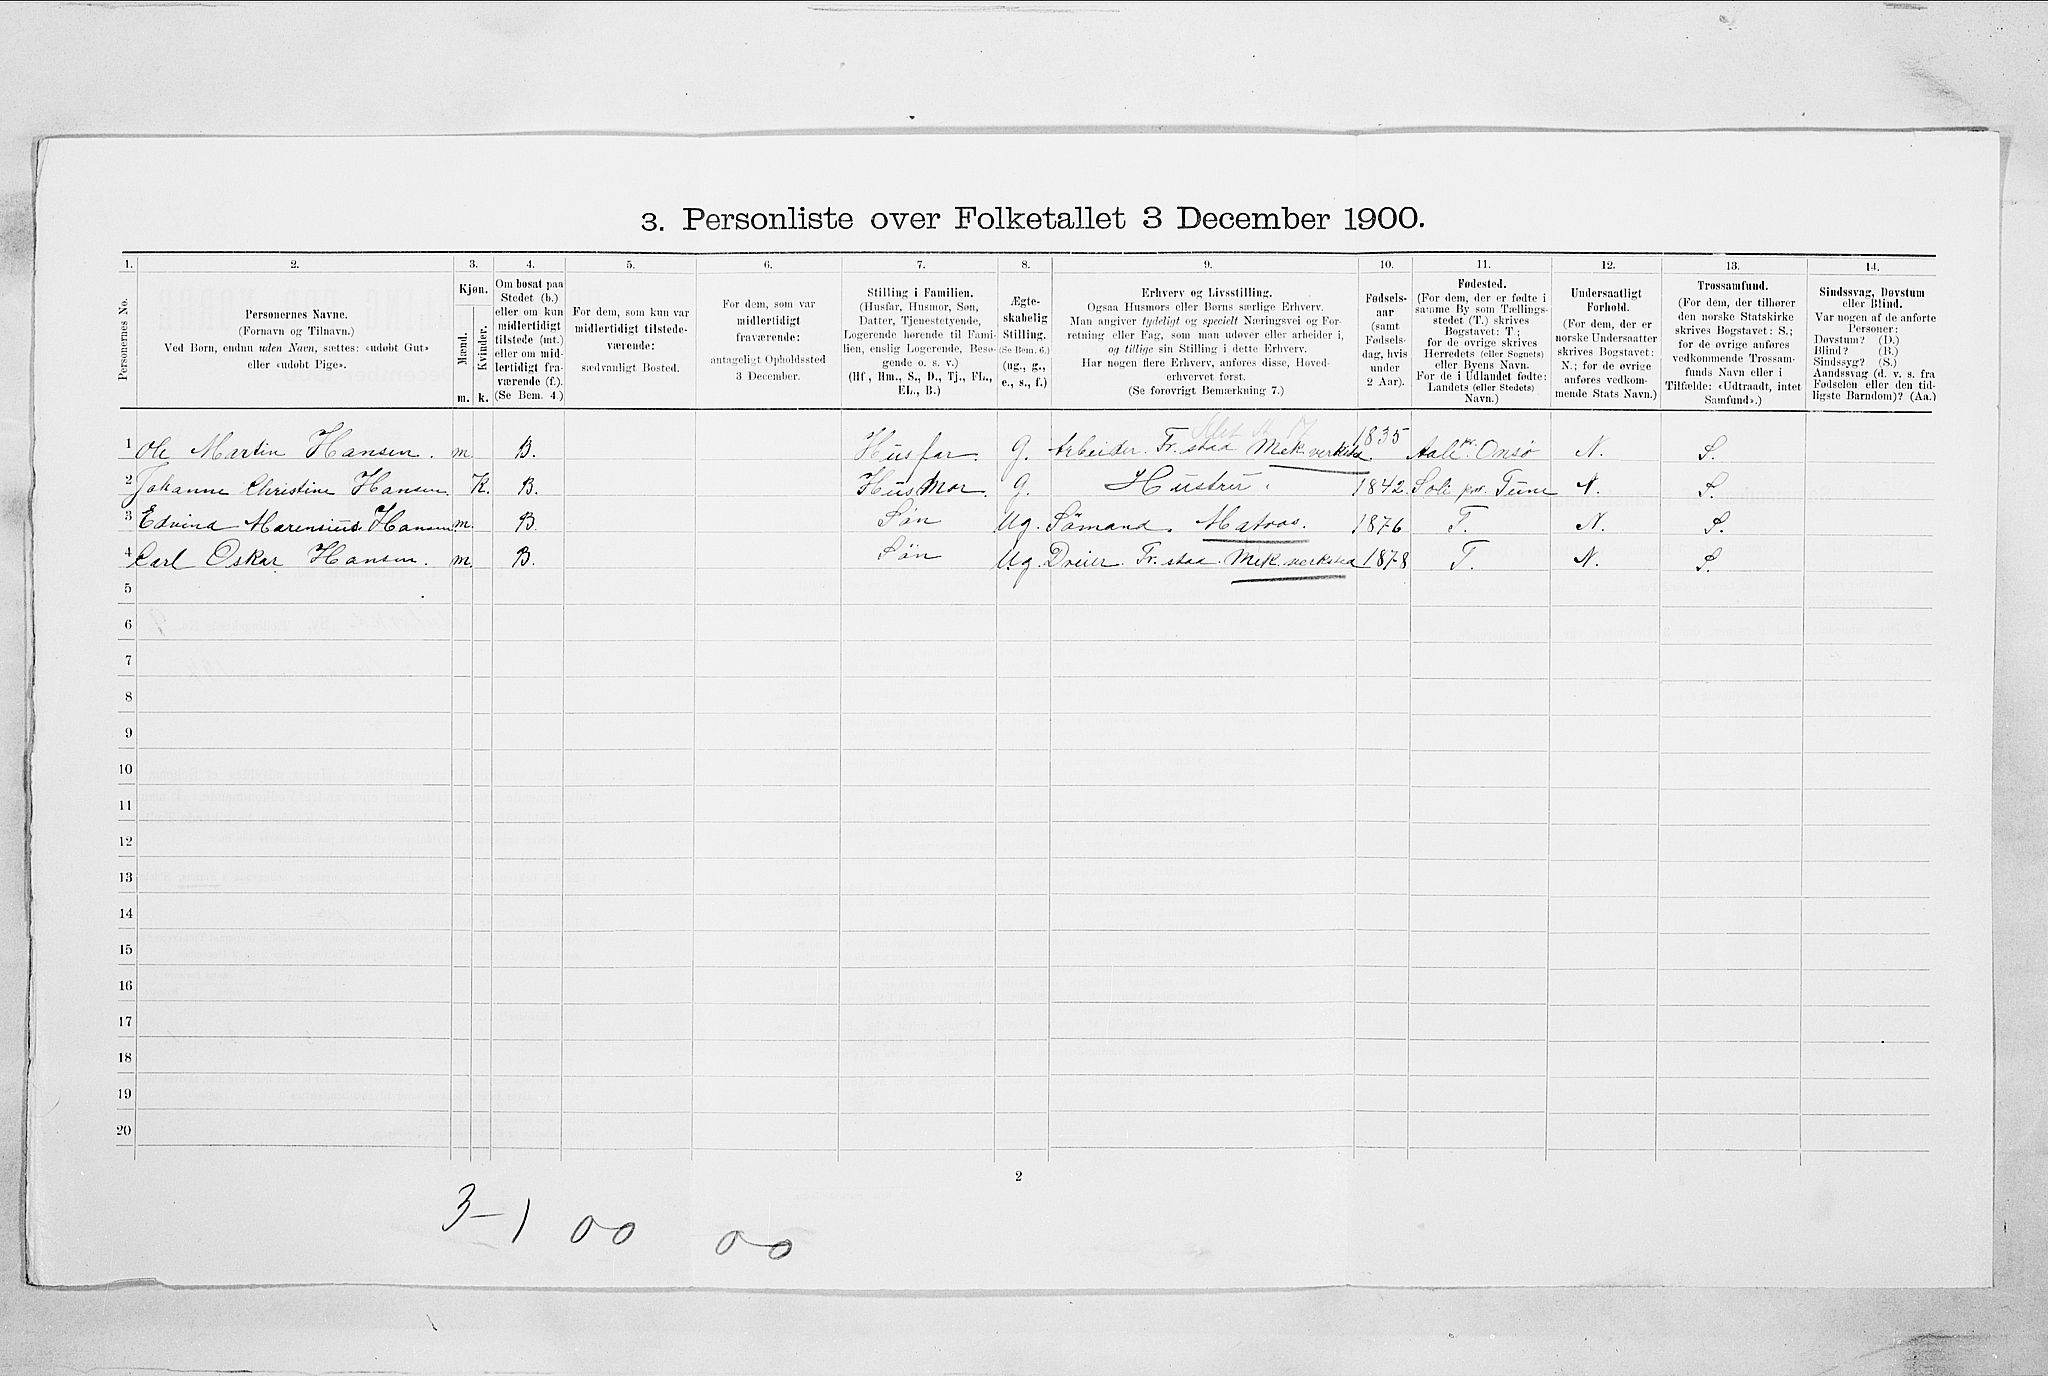 3. Personliste over Folketallet 3 December 1900.
1. 2. 3. 4. 5. 6. 7. 8. 9. 10. 11. 12. 13. 14.
Personernes No.
Personernes Navne.
(Fornavn og Tilnavn.)
Ved Børn, endnu uden Navn, sættes: «udøbt Gut»
eller «udøbt Pige».
Kjøn.
Mænd.
Kvinder.
m. k.
Om bosat paa
Stedet (b.)
eller om kun
midlertidigt
tilstede (mt.)
eller om mid-
lertidigt fra-
værende (f.).
(Se Bem. 4.)
For dem, som kun var
midlertidigt tilstede-
værende:
sædvanligt Bosted.
For dem, som var
midlertidigt
fraværende:
antageligt Opholdssted
3 December.
Stilling i Familien.
(Husfar, Husmor, Søn,
Datter, Tjenestetyende,
Logerende hørende til Fami-
lien, enslig Logerende, Besø-
gende o. s. v.)
(Hf., Hm., S., D., Tj., FL.,
EL., B.)
Ægte-
skabelig
Stilling.
(Se Bem. 6.)
(ug., g.,
e., s., f.)
Erhverv og Livsstilling.
Ogsaa Husmors eller Børns særlige Erhverv.
Man angiver tydeligt og specielt Næringsvei og For-
retning eller Fag, som man udøver eller arbeider i,
og tillige sin Stilling i dette Erhverv.
Har nogen flere Erhverv, anføres disse, Hoved-
erhvervet først.
(Se forøvrigt Bemærkning 7.)
Fødsels-
aar
(samt
Fødsels-
dag, hvis
under
2 Aar).
Fødested.
(For dem, der er fødte i
samme By som Tællings-
stedet (T.) skrives
Bogstavet: T.;
for de øvrige skrives
Herredets (eller Sognets)
eller Byens Navn.
For de i Udlandet fødte:
Landets (eller Stedets)
Navn.)
Undersaatligt
Forhold.
(For dem, der er
norske Undersaatter
skrives Bogstavet:
N.; for de øvrige
anføres vedkom-
mende Stats Navn.)
Trossamfund.
(For dem, der tilhører
den norske Statskirke
skrives Bogstavet: S.;
for de øvrige anføres
vedkommende Trossam-
funds Navn eller i
Tilfælde: «Udtraadt, intet
Samfund».)
Sindssvag, Døvstum
eller Blind.
Var nogen af de anførte
Personer:
Døvstum? (D.)
Blind? (B.)
Sindssyg? (S.)
Aandssvag (d. v. s. fra
Fødselen eller den tid-
ligste Barndom)? (Aa.)
1 Ole Martin Hansen. m. B. Husfar. G. Arbeider. Fr.stad Mek. verksted. 1835 Aale pr. Onsø N. S.
2 Johanne Christine Hansen. K. B. HusMor. G. Hustru. 1842. Soli pr. Tune N. S.
3 Edvind Marensius Hansen m. B. Søn Ug. Sømand. Matros. 1876 T. N. S.
4 Carl Oskar Hansen. m. B. Søn Ug. Dreier. Fr.stad. Mek. verksted 1878 T. N. S.
5
6
7
8
9
10
11
12
13
14
15
16
17
18
19
20
2
3-1 00 00